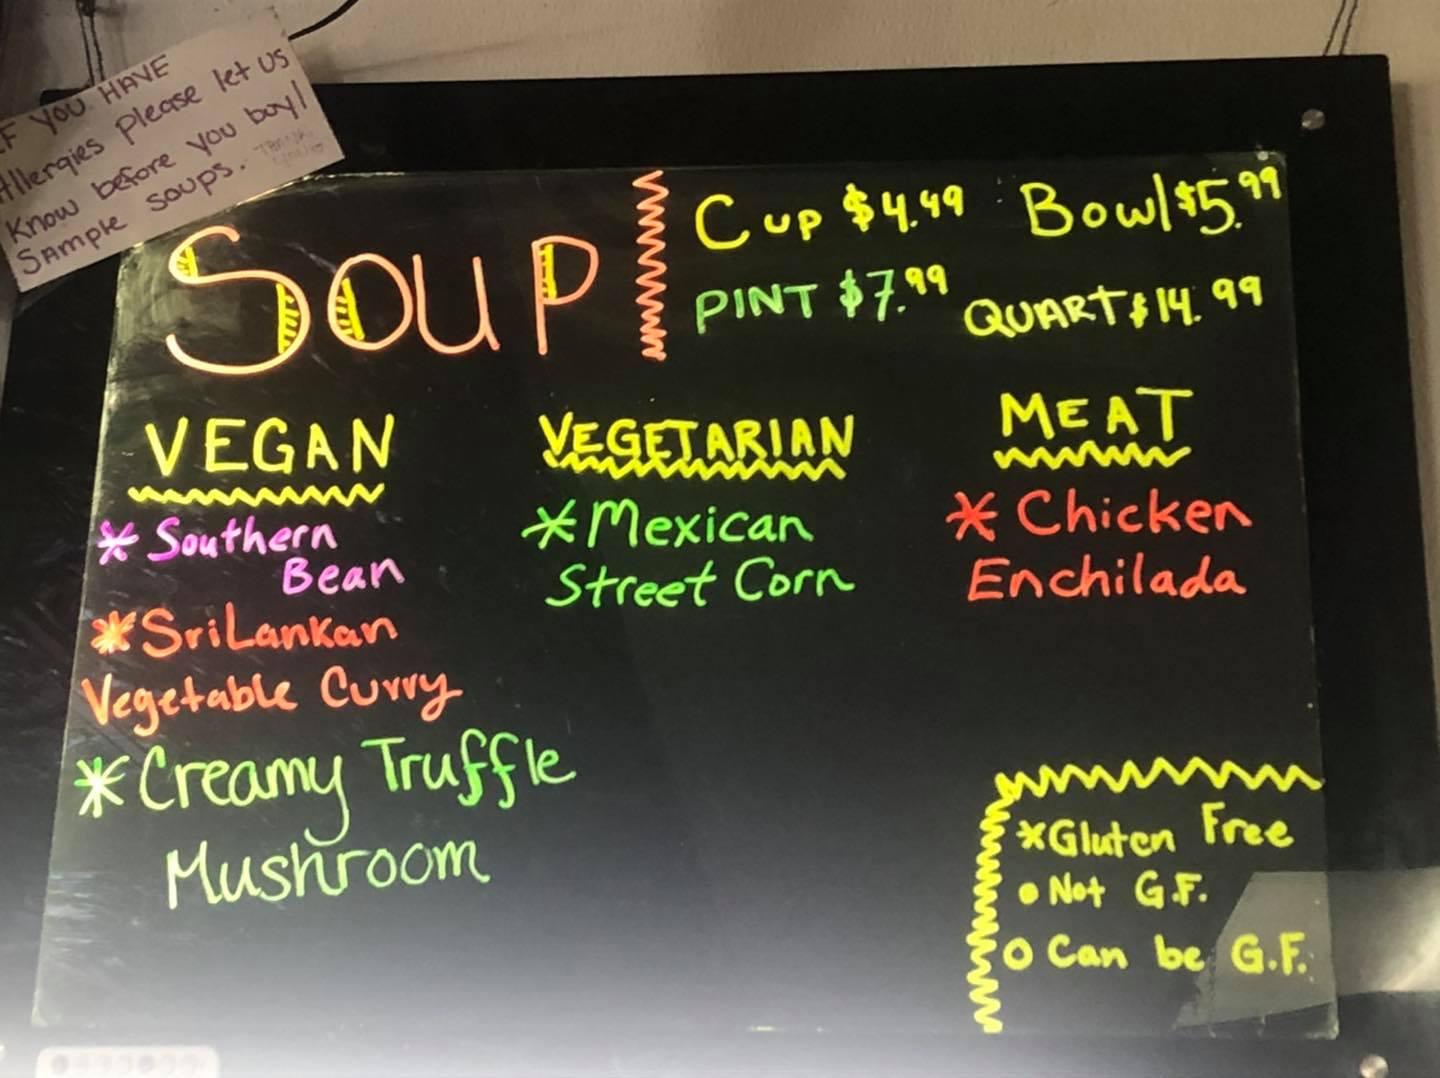 IF YOU HAVE
Allergies please let us
Know before you buy!
Sample soups.
SOUP
Cup $4.49 Bowl $5.99
PINT $7.99 QUART $14.99
VEGAN
* Southern
Bean
* Sri Lankan
Vegetable Curry
* Creamy Truffle
Mushroom
VEGETARIAN
* Mexican
Street Corn
MEAT
* Chicken
Enchilada
* Gluten Free
• Not G.F.
O Can be G.F.